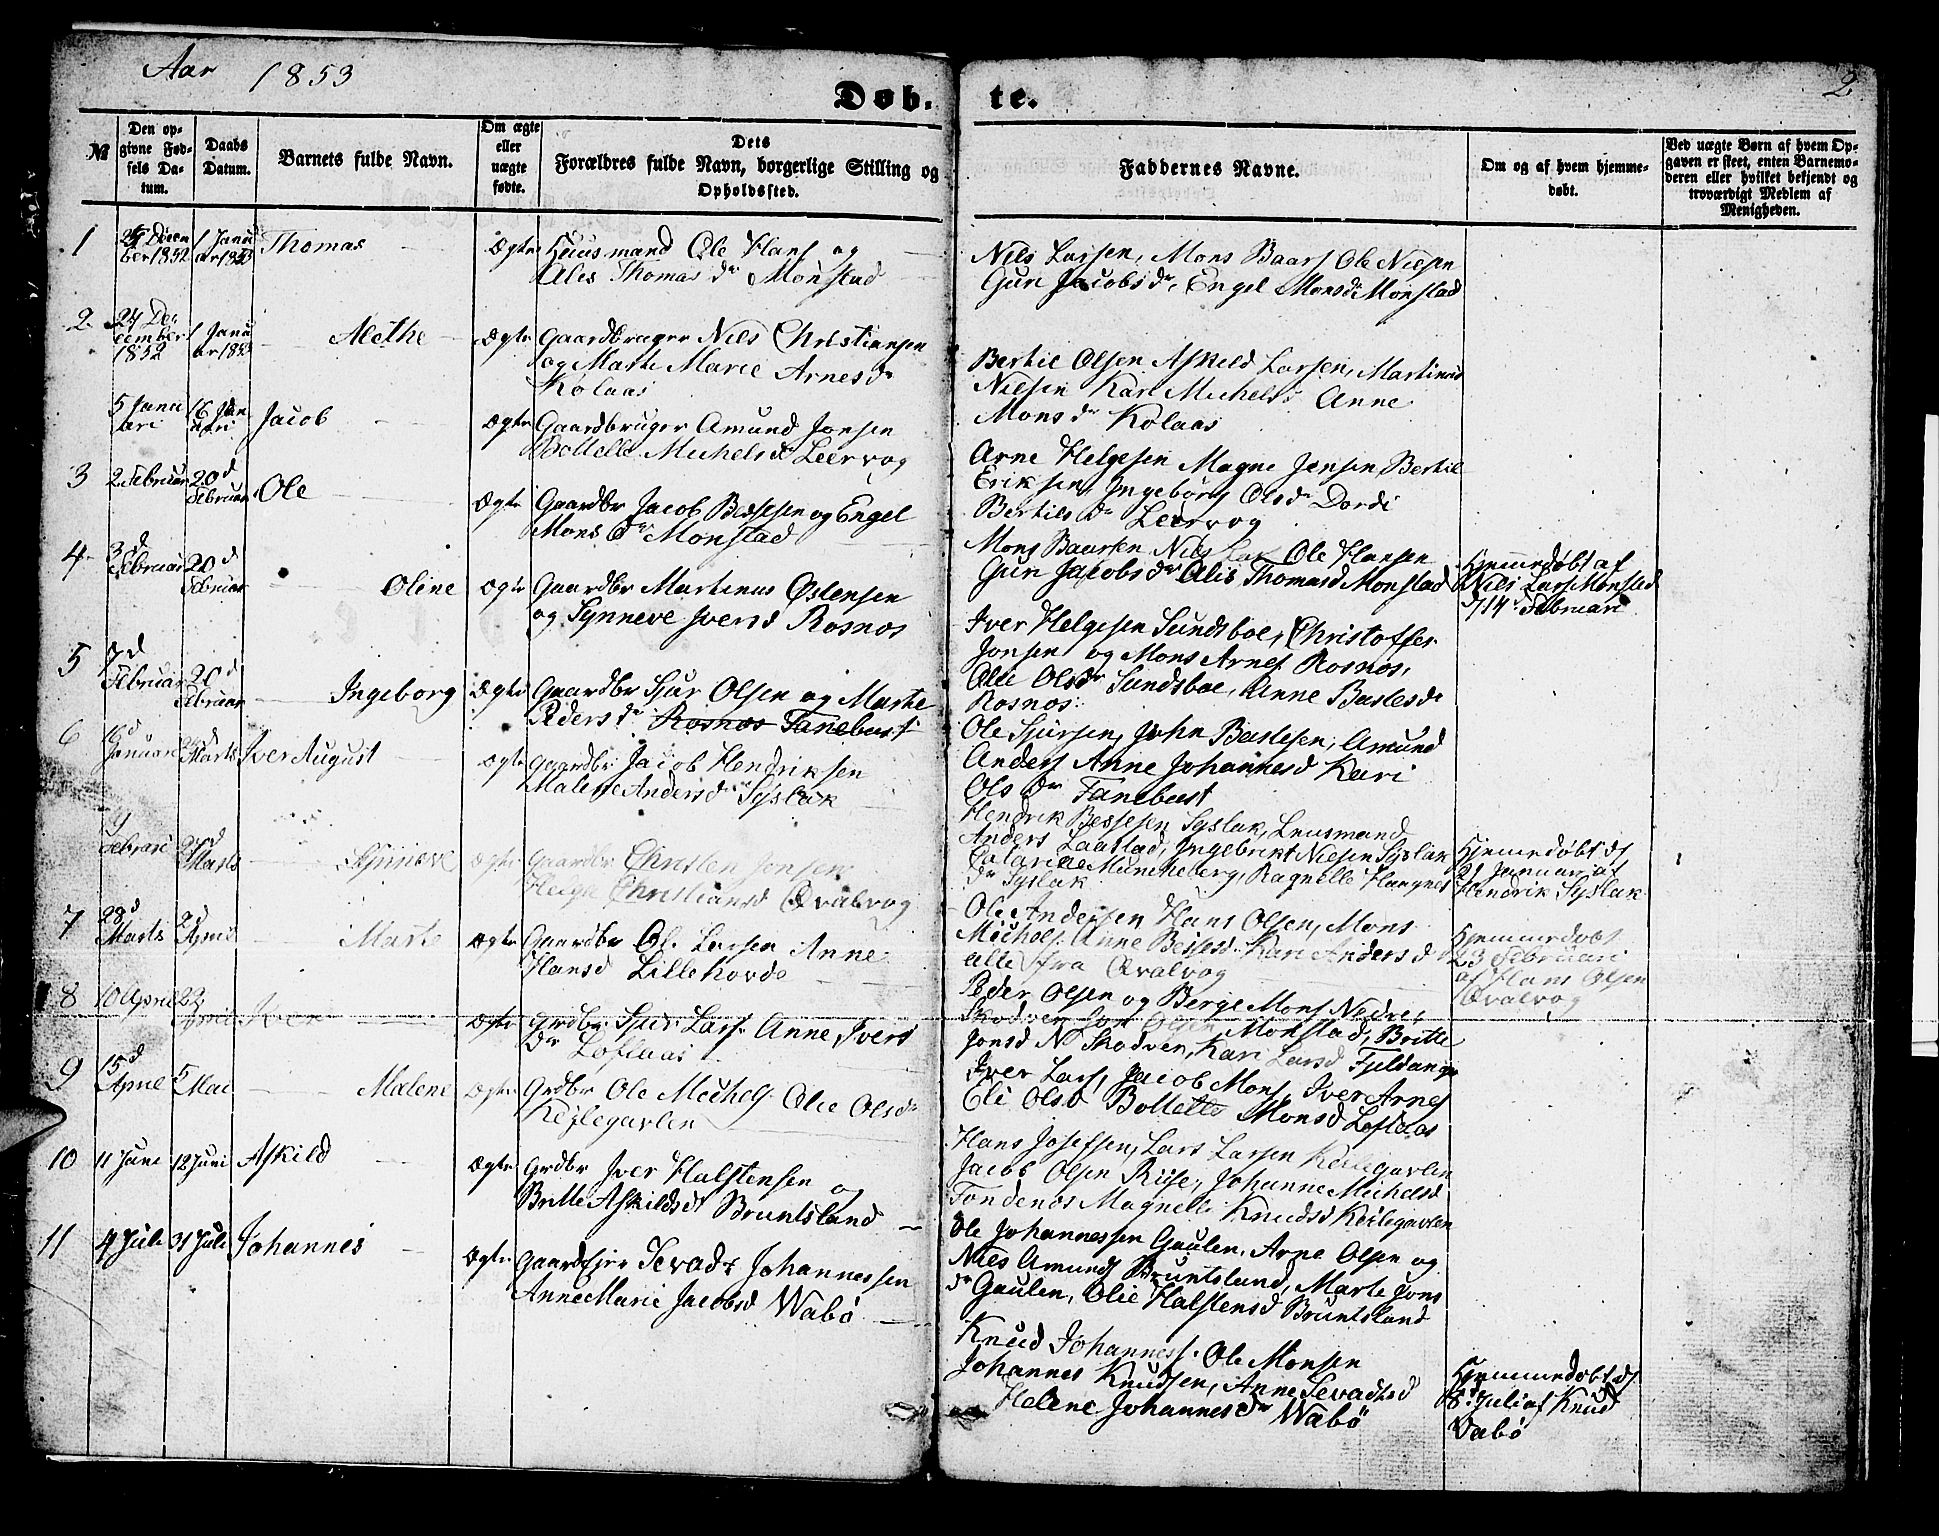 Aar 1853
Døb. te.
2
№
Den opgivne Fødsels Datum.
Daabs Datum.
Barnets fulde Navn.
Om ægte eller uægte fødte.
Dets Forældres fulde Navn, borgerlige Stilling og Opholdssted.
Faddernes Navne.
Om og af hvem hjemmedøbt.
Ved uægte Børn af hvem Opgaven er skeet, enten Barnemoderen eller hvilket bekjendt og troværdigt Medlem af Menigheden.
1
Decem
ber 1852
1 Janu
ar 1853
Thomas
Ægte
Huusmand Ole Hans og
Alis Thomas dr Monstad
Nils Larsen, Mons Baars Ole Nielsen
Guri Jacobs dr, Engel Monsdr Monstad
2
24 De
cember
1852
1 Janu
ar 1853
Alethe
Ægte
Gaardbruger Nils Christiansen
og Marte Marie Arnesdr
Kolaas
Bertil Olsen Askild Larsen, Martinus
Nielsen Kari Michelsd Anne
Mons dr Kolaas
5 Janu
ari
16 Jan
uari
Jacob
Ægte
Gaardbruger Amund Jonsen
Bolletle Michelsd Leervog
Arne Helgesen Magne Jensen, Bertil
Eriksen, Ingeborg Olsdr Dordi
Bertils dr Leervog
3
2 Februar
20d
Februar
Ole
Ægte
Gaardbr Jacob Bessesen og Engel
Mons dr Monstad
Mons Baarsen Nils Lar Ole Hansen
Guri Jacobs dr Alis Thomasd Monstad
Hjemmedøbt af
Nils Lars Monstad
d 14 Februari
4
3d
Februar
20d
Februar
Oline
Ægte
Gaardbr Martinus Østensen
og Synneve Iversd Rosnos
Iver Helgesen Sundsboe, Christoffer
Jonsen og Mons Arnes Rosnos,
Olie Olsdr Sundsboe, Anne Baslesdr
Rosnos
5
7d
Februar
20d
Februar
Ingeborg
Ægte
Gaardbr Sjur Olsen og Marte
Peders dr Rosnos Fanebust
Ole Sjursen, John Baslesen, Amund
Anders Anne Johannesd Kari
Ols dr Fanebust
6
Januari
Marts
Iver August
Ægte
Gaardbr Jacob Hendriksen
Malene Andersd Syslak
Hendrik Bessesen Syslak, Lensmand
Anders Laastad, Ingebrikt Nielsen Syslak
Catarine Munckeberg, Ragnelle Hangnes
dr Syslak
Hjemmedøbt d
21 Januar af
Hendrik Syslak
9
Februari
Marts
Synneve
Ægte
Gaardbr Christen Jonsen
Helga Christiansd Qvalvog
Ole Andersen Hans Olsen, Mons
Michels Anne Bessesd Kari Andersd
alle fra Qvalvog
Hjemmedøbt
23 Februari
af Hans Olsen
Qvalvog
7
28d
Marts
April
Marte
Ægte
Gaardbr Ol. Larsen Anne
Hansd Lillehovde
Peder Olsen og Berge Mons Nedre
Skodven Lars Olsen Monstad, Britte
Jonsd N Skodven, Kari Larsd Fjeldanger
8
10 April
23
April
Iver
Ægte
Grdbr Sjur Lars Anne Ivers
dr Loflaas
Iver Lars, Jacob Mons, Iver Arnes
Eli Olsd Bolletle Monsd Loflaas
9
15d
April
5
Mai
Malene
Ægte
Grdbr Ole Michels Olie Olsdr
Keilegavlen
Hans Josefsen, Lars Larsen Keilegavlen
Jacob Olsen Riise, Johanne Michelsd
Tondenes Magnelle Knudsd Keilegavlen
10
11 Juni
12 Juni
Askild
Ægte
Grdbr Iver Halstensen og
Britte Askildsd Bruntsland
Ole Johannessen Gaulen, Arne Olsen og
Niels Amunds Bruntsland, Marte Jons
dr Gaulen, Olie Halstensd Bruntsland
11
4 Juli
31 Juli
Johannes
Ægte
Gaardejer Sevad Johannessen
Anne Marie Jacobsd Wabø
Knud Johanness. Ole Monsen
Johannes Knudsen, Anne Sevadsd
Helene Johannesdr Wabø
Hjemmedøbt d
8d Juli af Knud
Vabø